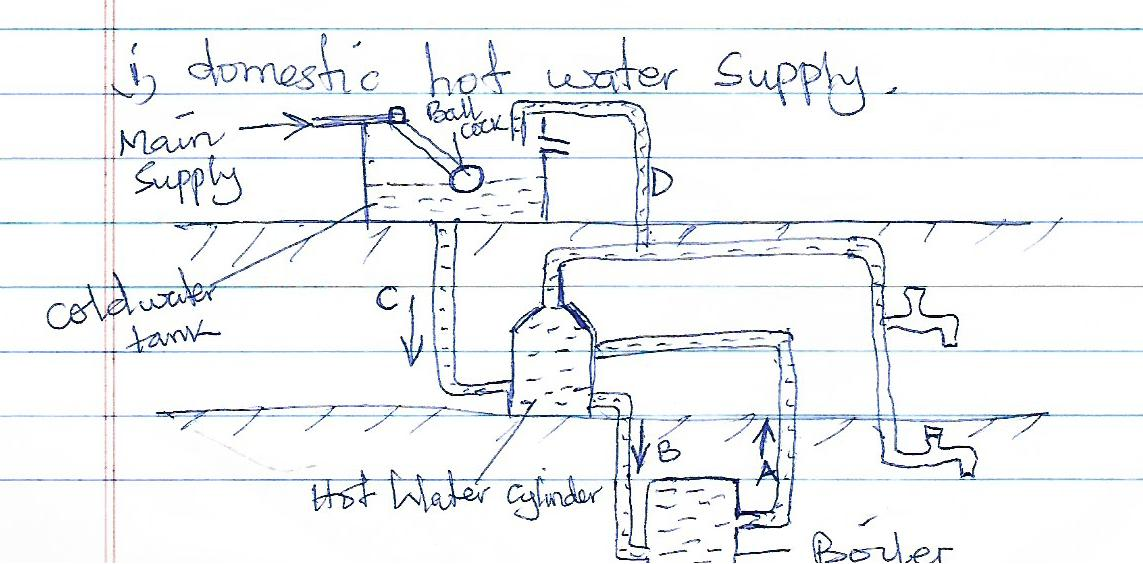 i) domestic hot water Supply.
Main Supply
Ball cock
D
cold water tank
C
Hot Water cylinder
B
A
Boiler